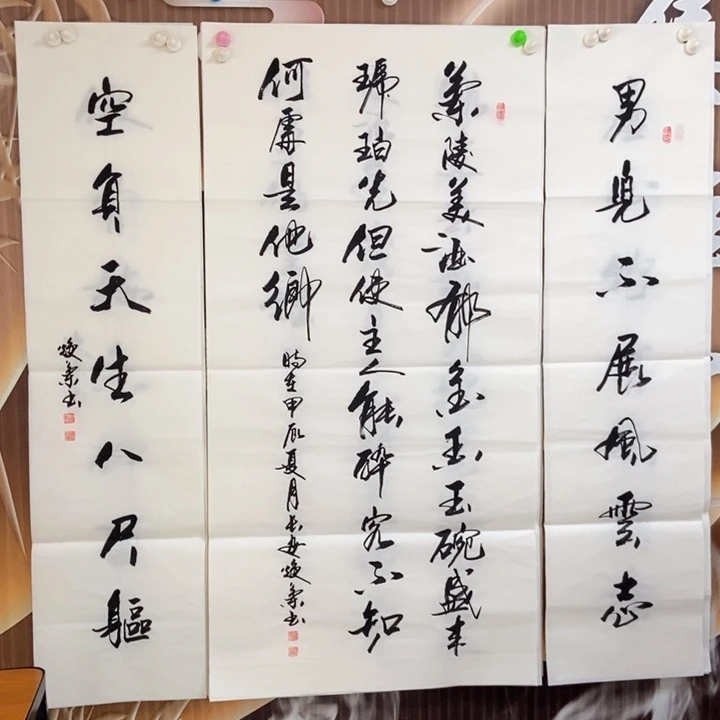 男兒不展風雲志
蘭陵美酒郁金香玉碗盛来
琥珀光但使主人能醉客不知
何處是他鄉
時在甲辰夏月长安焕书
空負天生八尺軀
焕书